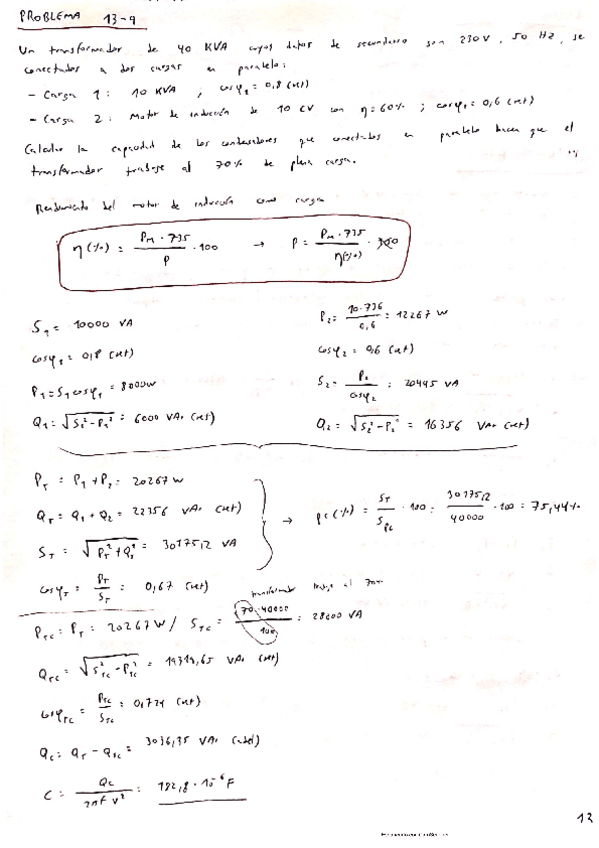 PROBLEMA 13-9
Un transformador de 40 KVA cuyos datos de secundario son 230V, 50 Hz, se
conectados a dos cargas en paralelo:
- Carga 1: 10 KVA ; cosφ₁ = 0,8 (ret)
- Carga 2: Motor de inducción de 10 CV con η=60% ; cosφ₂ = 0,6 (ret)
Calcular la capacidad de los condensadores que conectados en paralelo hacen que el
transformador trabaje al 70% de plena carga.
Rendimiento del motor de inducción como carga
η(%) = PM · 735 / P · 100 → P = PM · 735 / η(%) · 100
S₁ = 10000 VA
P₂ = 10·736 / 0,6 = 12267 W
cosφ₁ = 0,8 (ret)
cosφ₂ = 0,6 (ret)
P₁ = S₁ cosφ₁ = 8000W
S₂ = P₂ / cosφ₂ = 20445 VA
Q₁ = √S₁² - P₁² = 6000 VAr (ret)
Q₂ = √S₂² - P₂² = 16356 VAr (ret)
PT = P₁ + P₂ = 20267 W
QT = Q₁ + Q₂ = 22356 VAr (ret) → pc(%) = ST / Spc · 100 = 30175,2 / 40000 · 100 = 75,44%
ST = √PT² + QT² = 30175,2 VA
cosφT = PT / ST = 0,67 (ret)
transformador trabaje al 70%
PTC = PT = 20267 W / STC = 70·40000 / 100 = 28000 VA
QTC = √STC² - PTC² = 19319,65 VAr (ret)
cosφTC = PTC / STC = 0,724 (ret)
QC = QT - QTC = 3036,35 VAr (adel)
C = QC / 2πf V² = 182,8 · 10⁻⁶ F
12